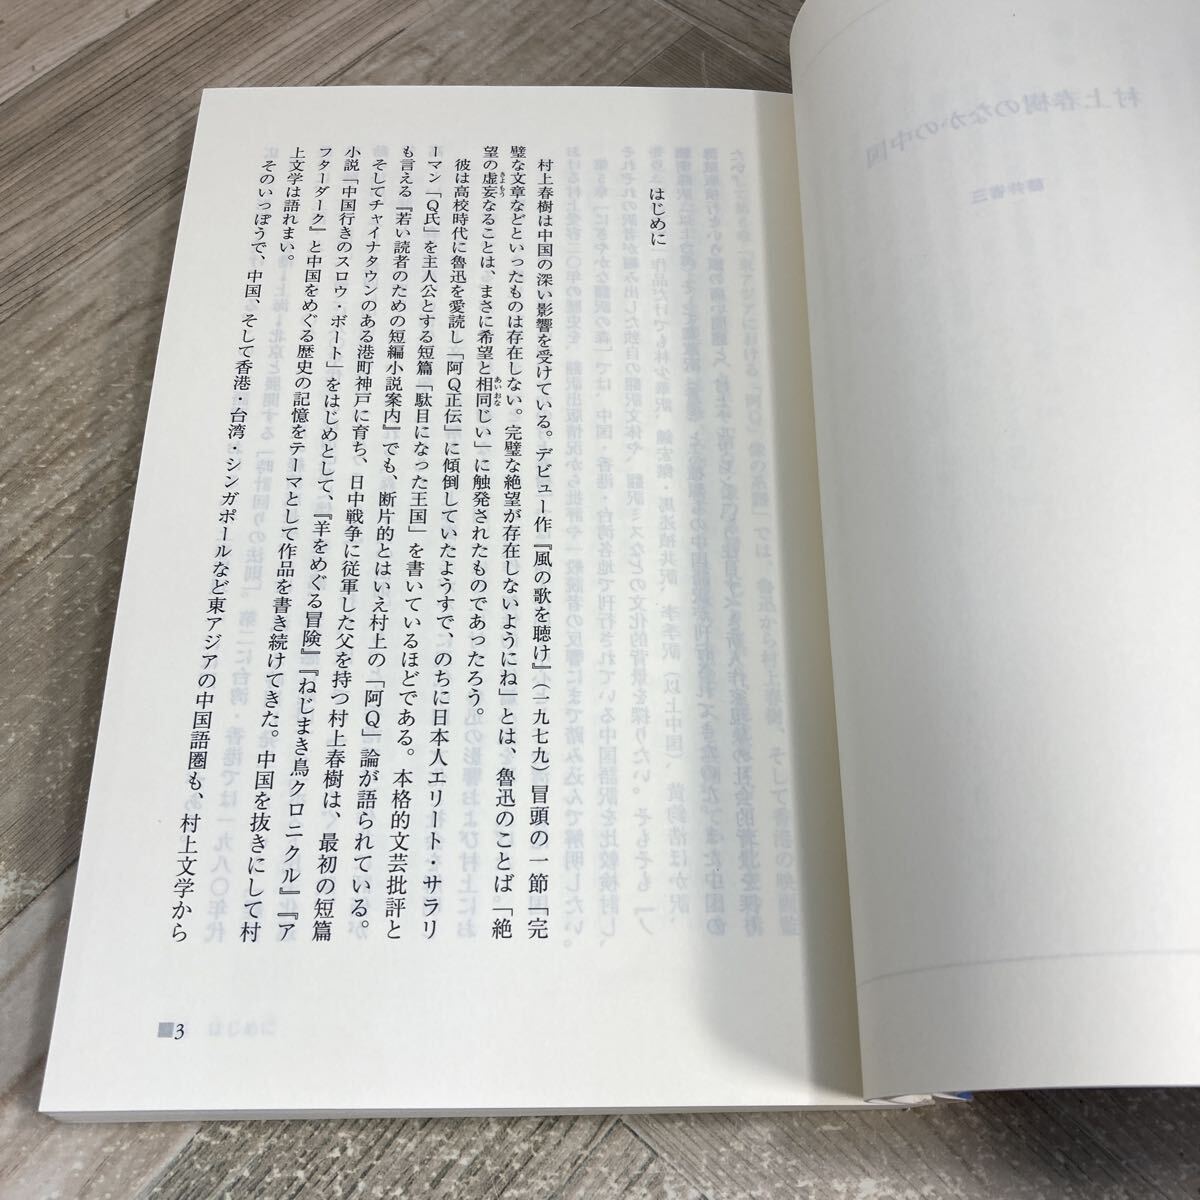 はじめに
村上春樹は中国の深い影響を受けている。デビュー作『風の歌を聴け』(一九七九)冒頭の一節「完
璧な文章などといったものは存在しない。完璧な絶望が存在しないようにね」とは、魯迅のことば「絶
望の虚妄なることは、まさに希望と相同じい」に触発されたものであったろう。
彼は高校時代に魯迅を愛読し「阿Q正伝」に傾倒していたようすで、のちに日本人エリート・サラリ
ーマン「Q氏」を主人公とする短篇「駄目になった王国」を書いているほどである。本格的文芸批評と
も言える『若い読者のための短編小説案内』でも、断片的とはいえ村上の「阿Q」論が語られている。
そしてチャイナタウンのある港町神戸に育ち、日中戦争に従軍した父を持つ村上春樹は、最初の短篇
小説「中国行きのスロウ・ボート」をはじめとして、『羊をめぐる冒険』『ねじまき鳥クロニクル』『ア
フターダーク』と中国をめぐる歴史の記憶をテーマとして作品を書き続けてきた。中国を抜きにして村
上文学は語れまい。
そのいっぽうで、中国、そして香港・台湾・シンガポールなど東アジアの中国語圏も、村上文学から
3
村上春樹のなかの中国
藤井省三